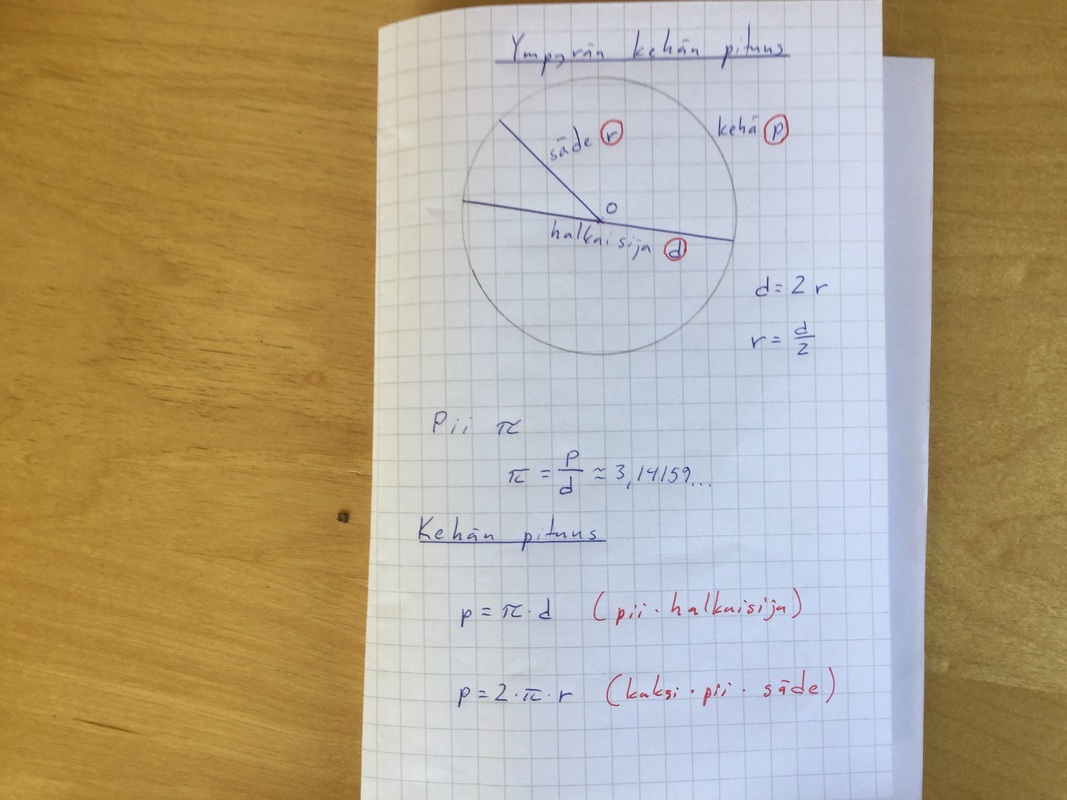 Ympyrän kehän pituus
säde r
kehä p
O
halkaisija d
d = 2 r
r = d/2
Pii π
π = p/d ≈ 3,14159...
Kehän pituus
p = π · d (pii · halkaisija)
p = 2 · π · r (kaksi · pii · säde)